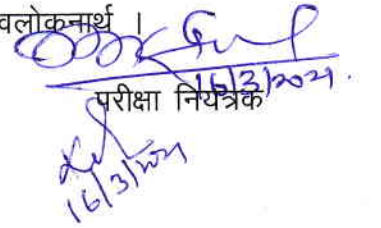 वलोकनार्थ ।
16/3/2021.
परीक्षा नियंत्रक
16/3/2021